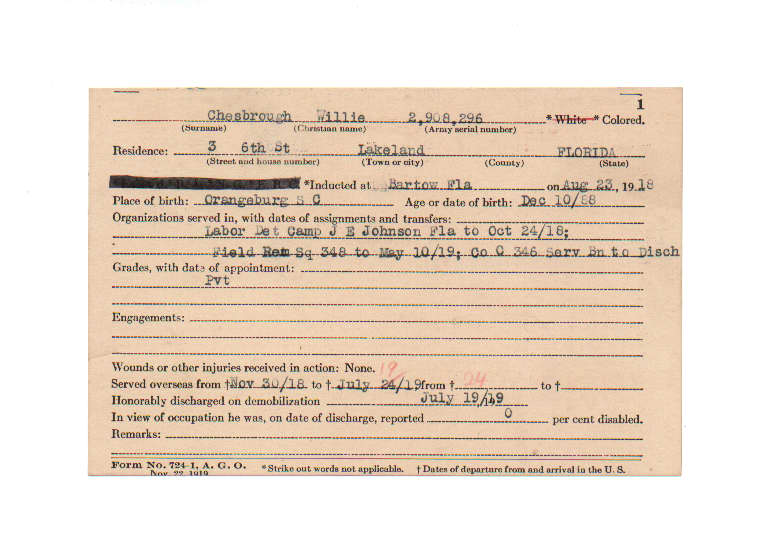 1
Chesbrough Willie 2,908,296 * White * Colored.
(Surname) (Christian name) (Army serial number)
Residence: 3 6th St Lakeland FLORIDA
(Street and house number) (Town or city) (County) (State)
*Inducted at Bartow Fla on Aug 23, 1918
Place of birth: Orangeburg S C Age or date of birth: Dec 10/88
Organizations served in, with dates of assignments and transfers:
Labor Det Camp J E Johnson Fla to Oct 24/18;
Field Rem Sq 348 to May 10/19; Co C 346 Serv Bn to Disch
Grades, with date of appointment:
Pvt
Engagements:
Wounds or other injuries received in action: None.
19 24
Served overseas from † Nov 30/18 to † July 24/19 from † to †
Honorably discharged on demobilization July 19/19
In view of occupation he was, on date of discharge, reported 0 per cent disabled.
Remarks:
Form No. 724-1, A. G. O. *Strike out words not applicable. † Dates of departure from and arrival in the U. S.
Nov. 22 1919